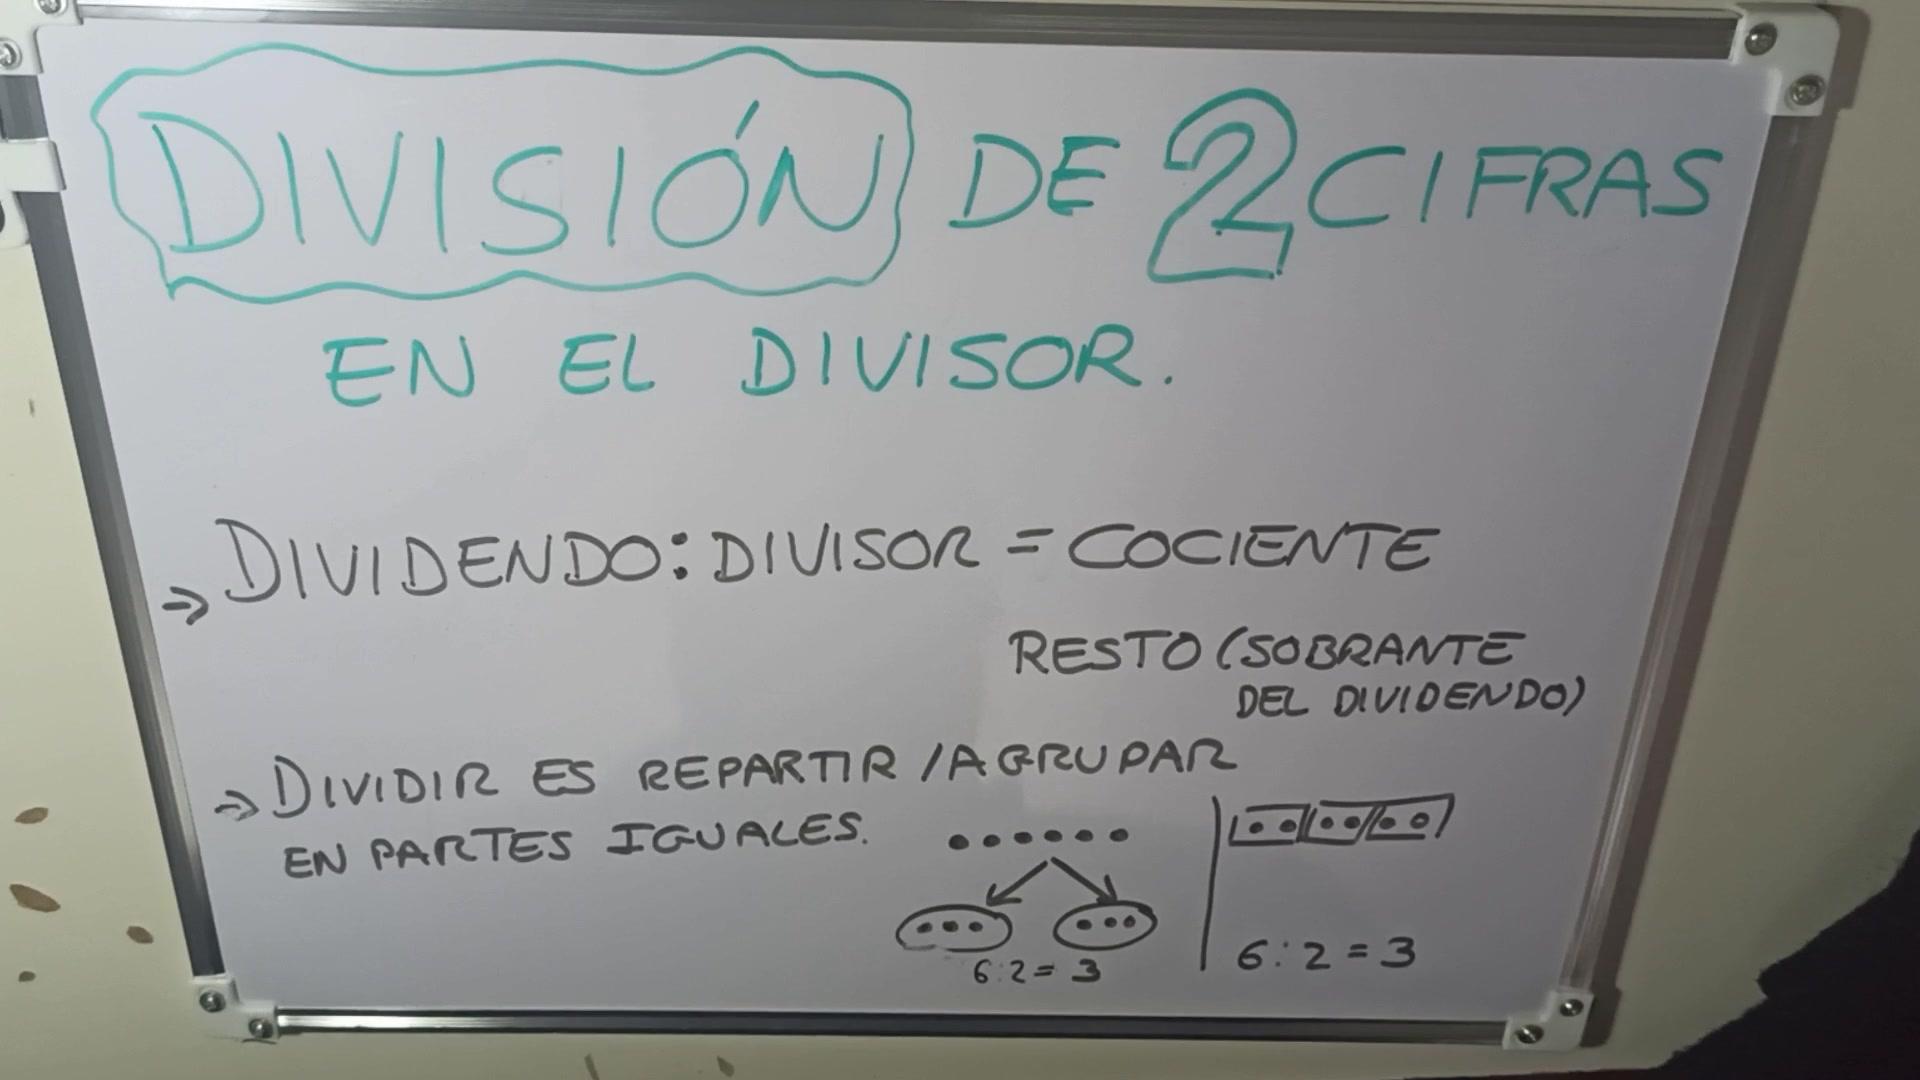 DIVISIÓN DE 2 CIFRAS
EN EL DIVISOR.
⇒ DIVIDENDO : DIVISOR = COCIENTE
RESTO (SOBRANTE
DEL DIVIDENDO)
⇒ DIVIDIR ES REPARTIR / AGRUPAR
EN PARTES IGUALES.
6:2 = 3
6:2 = 3